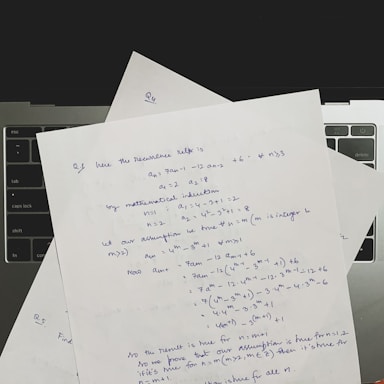 Q4
Q.1 here the recurrence reln is
an = 7an-1 - 12 an-2 + 6 ∀ n≥3
a1 = 2 a2 = 8
by mathematical induction
n=1 a1 = 4-3+1 = 2
n=2 a2 = 4² - 3² + 1 = 8
let our assumption is true n=m (m is integer &
m≥2) am = 4^m - 3^m + 1 ∀ m≥1
Now am+1 = 7am - 12 am-1 + 6
= 7am - 12 (4^m-1 - 3^m-1 + 1) + 6
= 7a^m - 12·4^m-1 - 12·3^m-1 - 12 + 6
= 7(4^m - 3^m + 1) - 3·4^m - 4·3^m - 6
= 4·4^m - 3·3^m + 1
= 4(m+1) - 3(m+1) + 1
So the result is true for n = m+1
So we prove that our assumption is true for n=1,2
if it's true for n=m (m>2, m∈Z) then it's true for
n=m+1
is true for all n.
Q.5
Find